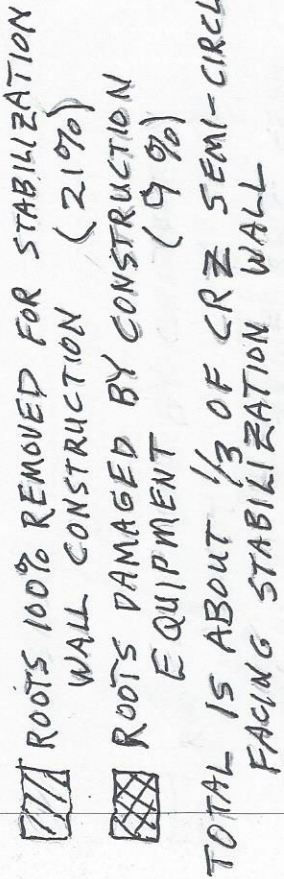 ROOTS 100% REMOVED FOR STABILIZATION
WALL CONSTRUCTION (21%)
ROOTS DAMAGED BY CONSTRUCTION
EQUIPMENT (9%)
TOTAL IS ABOUT 1/3 OF CRZ SEMI-CIRCL
FACING STABILIZATION WALL